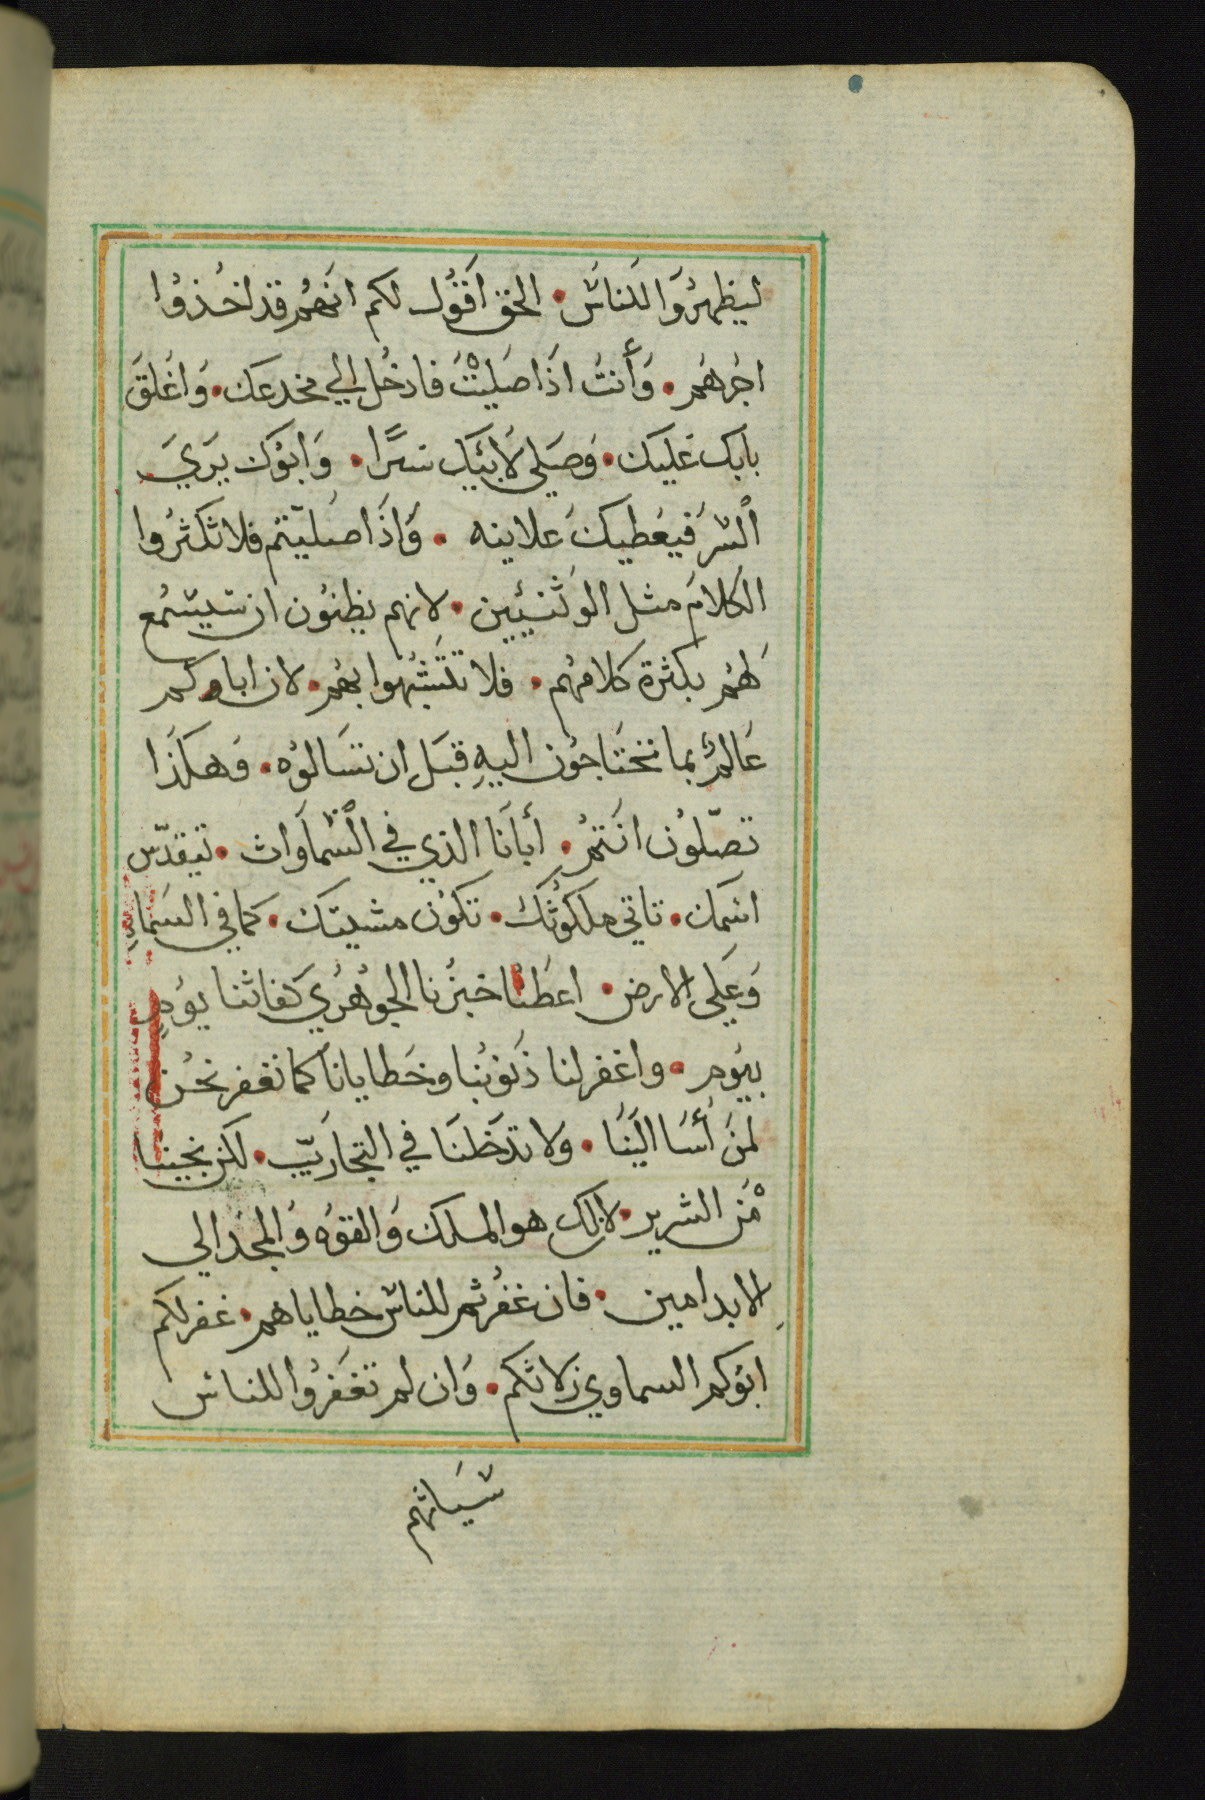 ليظهرُوَا للَناسَ • الحق اقَوُل لكم انهُم قد اخُذوُا
اجرهُم • وَأنتُ اذَا صَليْتَ فادخُل الي مخدعَك • وَاغُلقَ
بابَك عَليك • وَصَلي لاَبيَك سرًا • وَابوُكَ يَرَيَ
السّرَ فيَعَطيكَ عَلاينه • وَاذَا صَليّتمُ فلا تكثرُوا
الكلامَ مثل الوَثنيَيين • لانهم يظنوُن ان سَيسّمُع
لهَم بكثرة كلامُهم • فلا تتَشبُهوا بهُم • لان اباوكم
عَالمٌ بما تحَتاجوُن اليهِ قبَل ان تسَالوُه • وَهكذَا
تصّلوُن انتَمُ • أبانَا الذي في السّماَوَاث • تيقدّس
اسَمك • تاتي ملكوُثكَ • تكوُن مشيتك • كما في السَماءِ
وَعَلي الارض • اعَطنُا خبزُنا الجوُهرُي كفاثنا يوَمٍ
بيَوم • واغفر لنا ذنَوبُنا وخَطايانا كما نغفر نحُن
لمنَ أسَا اليَنَا • وَلا تدَخلنَا في التجاريَب • لكن نجينا
مْنَ الشرير • لان لك هو الملك وَالقوَه وَ المجدَ الي
الابد امين • فان غفُرثم للناسّ خطاياهم • غفر لكم
ابوَكم السماوي زلاثكم • وَان لم تغفَرُوا للناس
سَيَاثهم